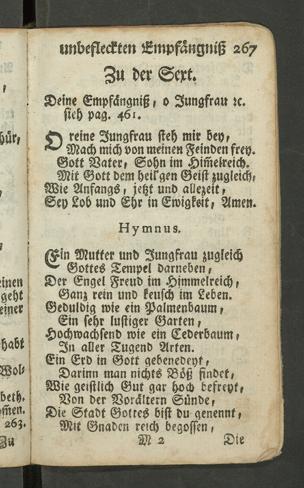 unbefleckten Empfängniß 267
Zu der Sext.
Deine Empfängniß, o Jungfrau ꝛc.
sieh pag. 461.
O reine Jungfrau steh mir bey,
Mach mich von meinen Feinden frey.
Gott Vater, Sohn im Him̃elreich.
Mit Gott dem heil'gen Geist zugleich,
Wie Anfangs, jetzt und allezeit,
Sey Lob und Ehr in Ewigkeit, Amen.
Hymnus.
Ein Mutter und Jungfrau zugleich
Gottes Tempel darneben,
Der Engel Freud im Himmelreich,
Ganz rein und keusch im Leben.
Geduldig wie ein Palmenbaum,
Ein sehr lustiger Garten,
Hochwachsend wie ein Cederbaum,
In aller Tugend Arten.
Ein Erd in Gott gebenedeyt,
Darinn man nichts Böß findet,
Wie geistlich Gut gar hoch befreyt,
Von der Vorältern Sünde,
Die Stadt Gottes bist du genennt,
Mit Gnaden reich begossen,
M 2 Die
hür,
einen
geht
einer
habt
Wol-
beth.
263.
Zu